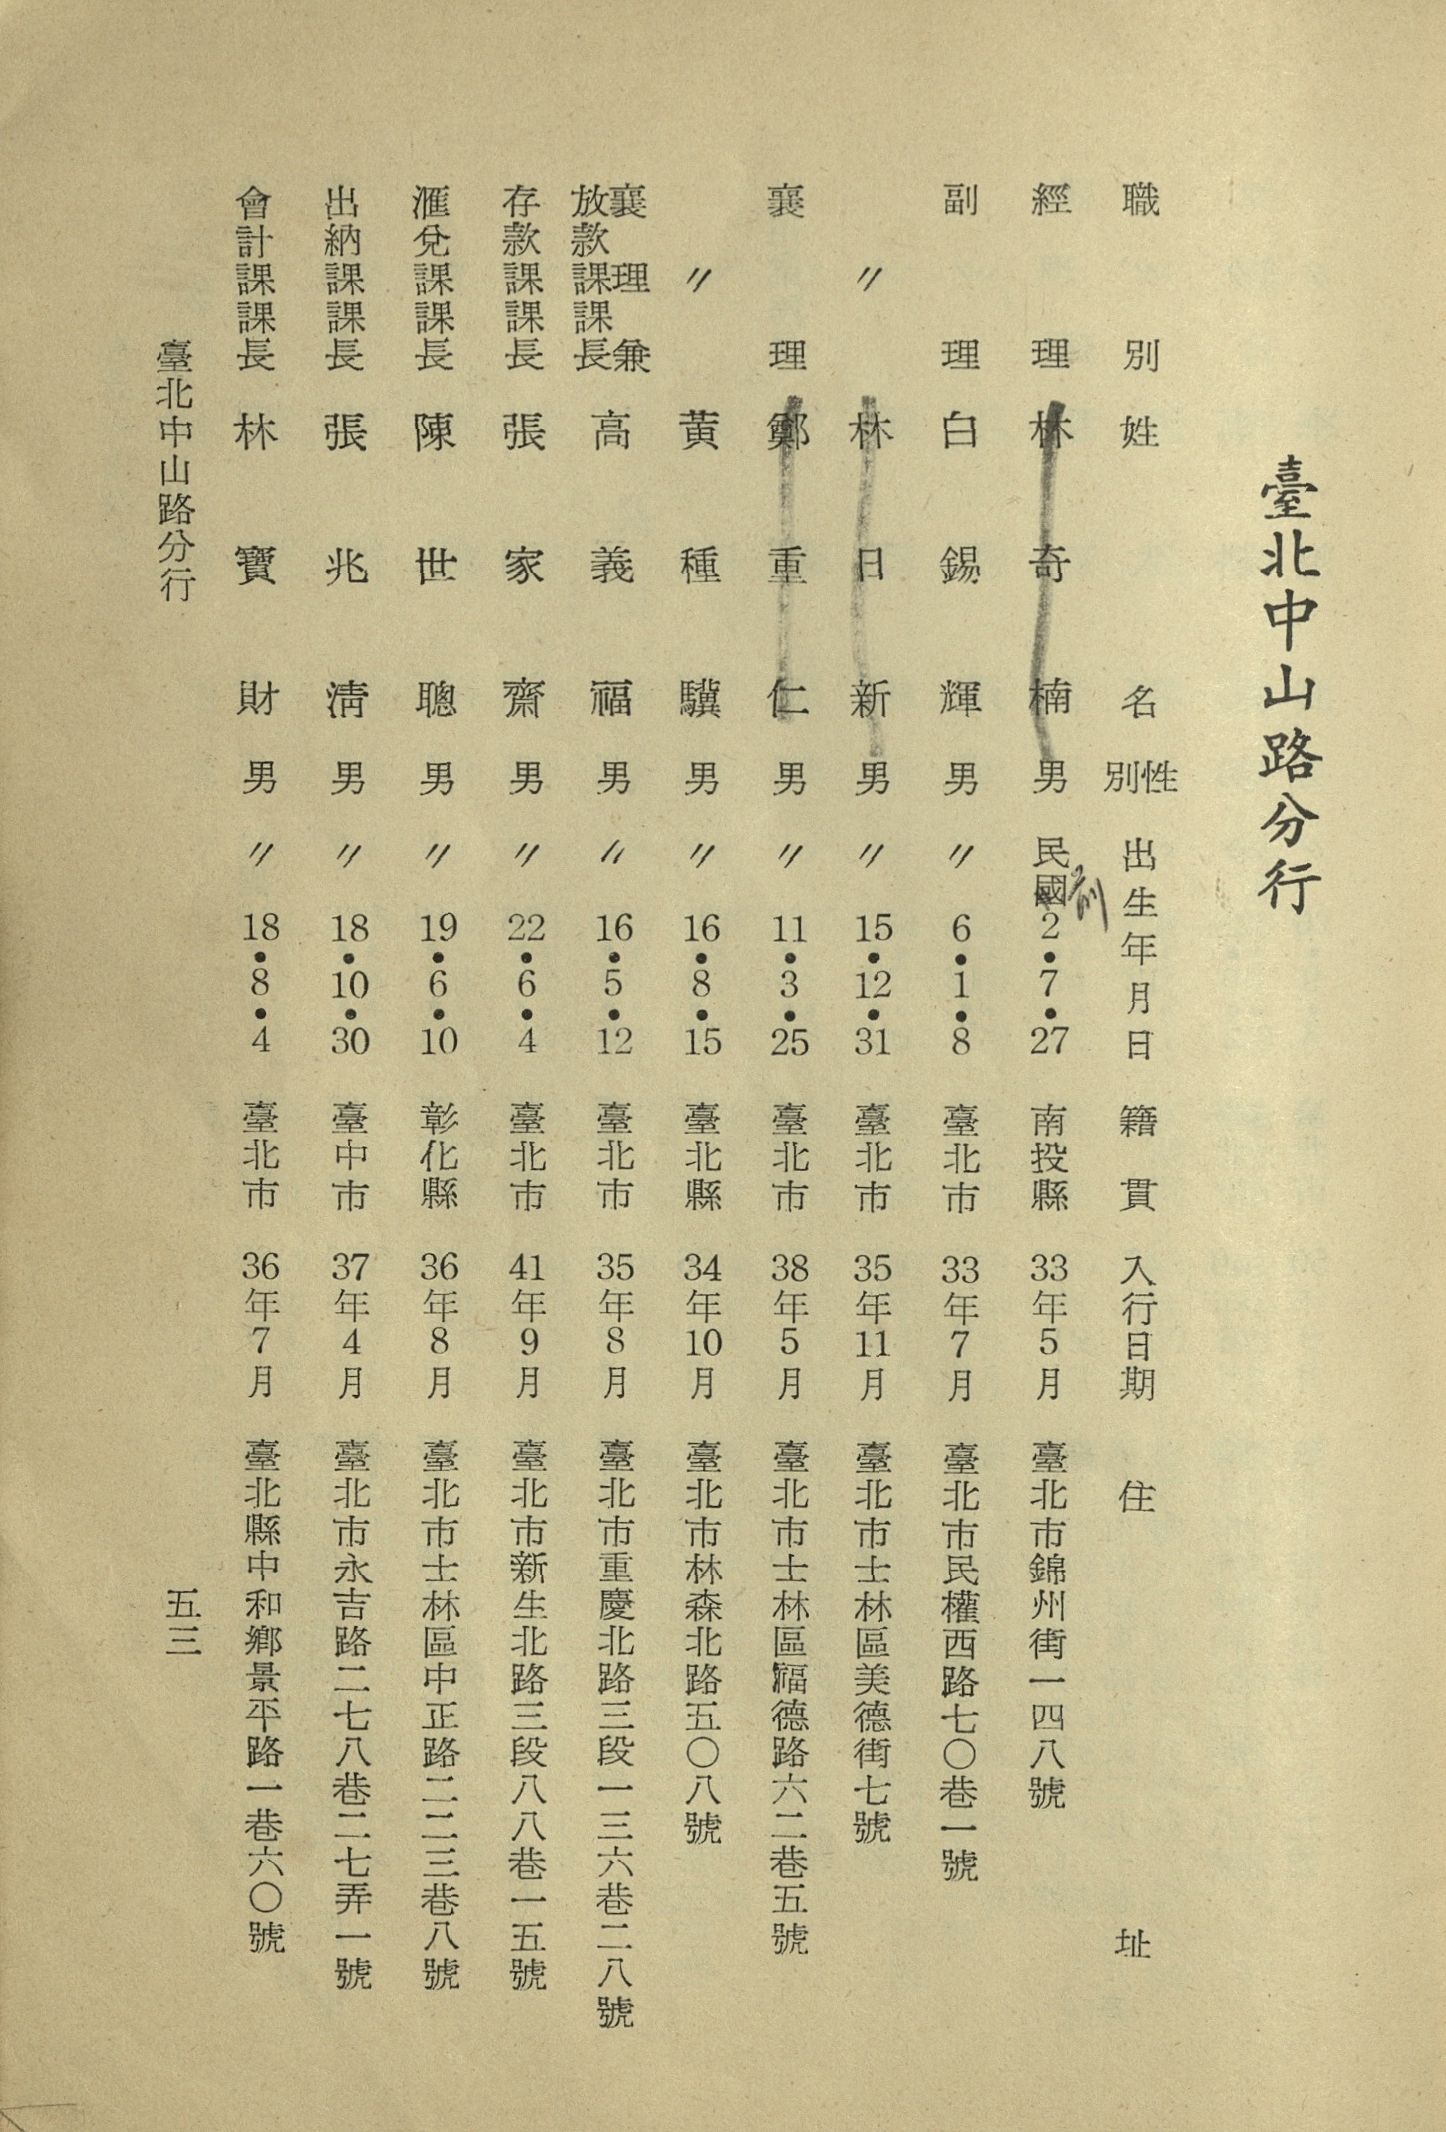 臺北中山路分行
職別 姓名 性別 出生年月日 籍貫 入行日期 住址
經理 林奇楠 男 民國前2•7•27 南投縣 33年5月 臺北市錦州街一四八號
副理 白錫輝 男 〃6•1•8 臺北市 33年7月 臺北市民權西路七〇巷一號
〃 林日新 男 〃15•12•31 臺北市 35年11月 臺北市士林區美德街七號
襄理 鄭重仁 男 〃11•3•25 臺北市 38年5月 臺北市士林區福德路六二巷五號
〃 黃種驥 男 〃16•8•15 臺北縣 34年10月 臺北市林森北路五〇八號
襄理兼放款課課長 高義福 男 〃16•5•12 臺北市 35年8月 臺北市重慶北路三段一三六巷二八號
存款課課長 張家齋 男 〃22•6•4 臺北市 41年9月 臺北市新生北路三段八八巷一五號
滙兌課課長 陳世聰 男 〃19•6•10 彰化縣 36年8月 臺北市士林區中正路二二三巷八號
出納課課長 張兆淸 男 〃18•10•30 臺中市 37年4月 臺北市永吉路二七八巷二七弄一號
會計課課長 林寶財 男 〃18•8•4 臺北市 36年7月 臺北縣中和鄉景平路一巷六〇號
臺北中山路分行
五三